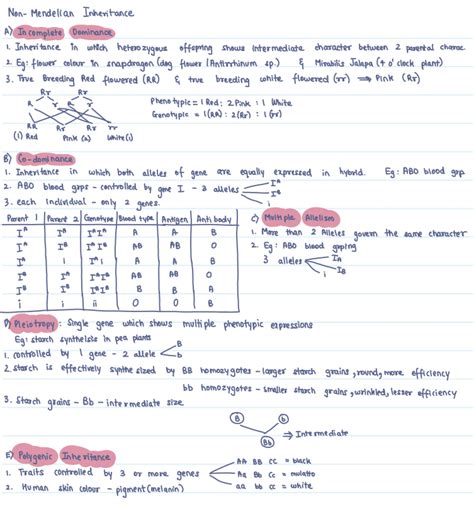 Non-Mendelian Inheritance
A) Incomplete Dominance
1. Inheritance in which heterozygous offspring shows intermediate character between 2 parental charac
2. Eg: flower colour in snapdragon (dog flower (Antirrhinum sp.) & Mirabilis Jalapa (4 o' clock plant)
3. True Breeding Red flowered (RR) & true breeding white flowered (rr) ⟹ Pink (Rr)
Rr Rr
R r R r
Phenotypic = 1 Red : 2 Pink : 1 White
Genotypic = 1(RR) : 2(Rr) : 1(rr)
RR Rr Rr rr
(1) Red Pink (2) White (1)
B) Co-dominance
1. Inheritance in which both alleles of gene are equally expressed in hybrid. Eg: ABO blood grp
2. ABO blood grps - controlled by gene I - 3 alleles Iᴬ Iᴮ i
3. each individual - only 2 genes.
Parent 1 Parent 2 Genotype Blood type Antigen Anti body
Iᴬ Iᴬ IᴬIᴬ A A B
Iᴬ Iᴮ IᴬIᴮ AB AB O
Iᴬ i Iᴬi A A B
Iᴮ Iᴬ IᴬIᴮ AB AB O
Iᴮ Iᴮ
i i ii O O B
C) Multiple Allelism
1. More than 2 Alleles govern the same character
2. Eg: ABO blood grping
3 alleles IA IB i
D) Pleiotropy: Single gene which shows multiple phenotypic expressions
Eg: starch synthelsis in pea plants
1. controlled by 1 gene - 2 allele B b
2. starch is effectively synthesized by BB homozygotes - larger starch grains, round, more efficiency
bb homozygotes - smaller starch grains, wrinkled, lesser efficiency
3. Starch grains - Bb - intermediate size
B b
Bb ⟹ Intermediate
E) Polygenic Inheritance
1. Traits controlled by 3 or more genes
AA BB CC = black
Aa Bb Cc = mulatto
aa bb cc = white
2. Human skin colour - pigment (melanin)